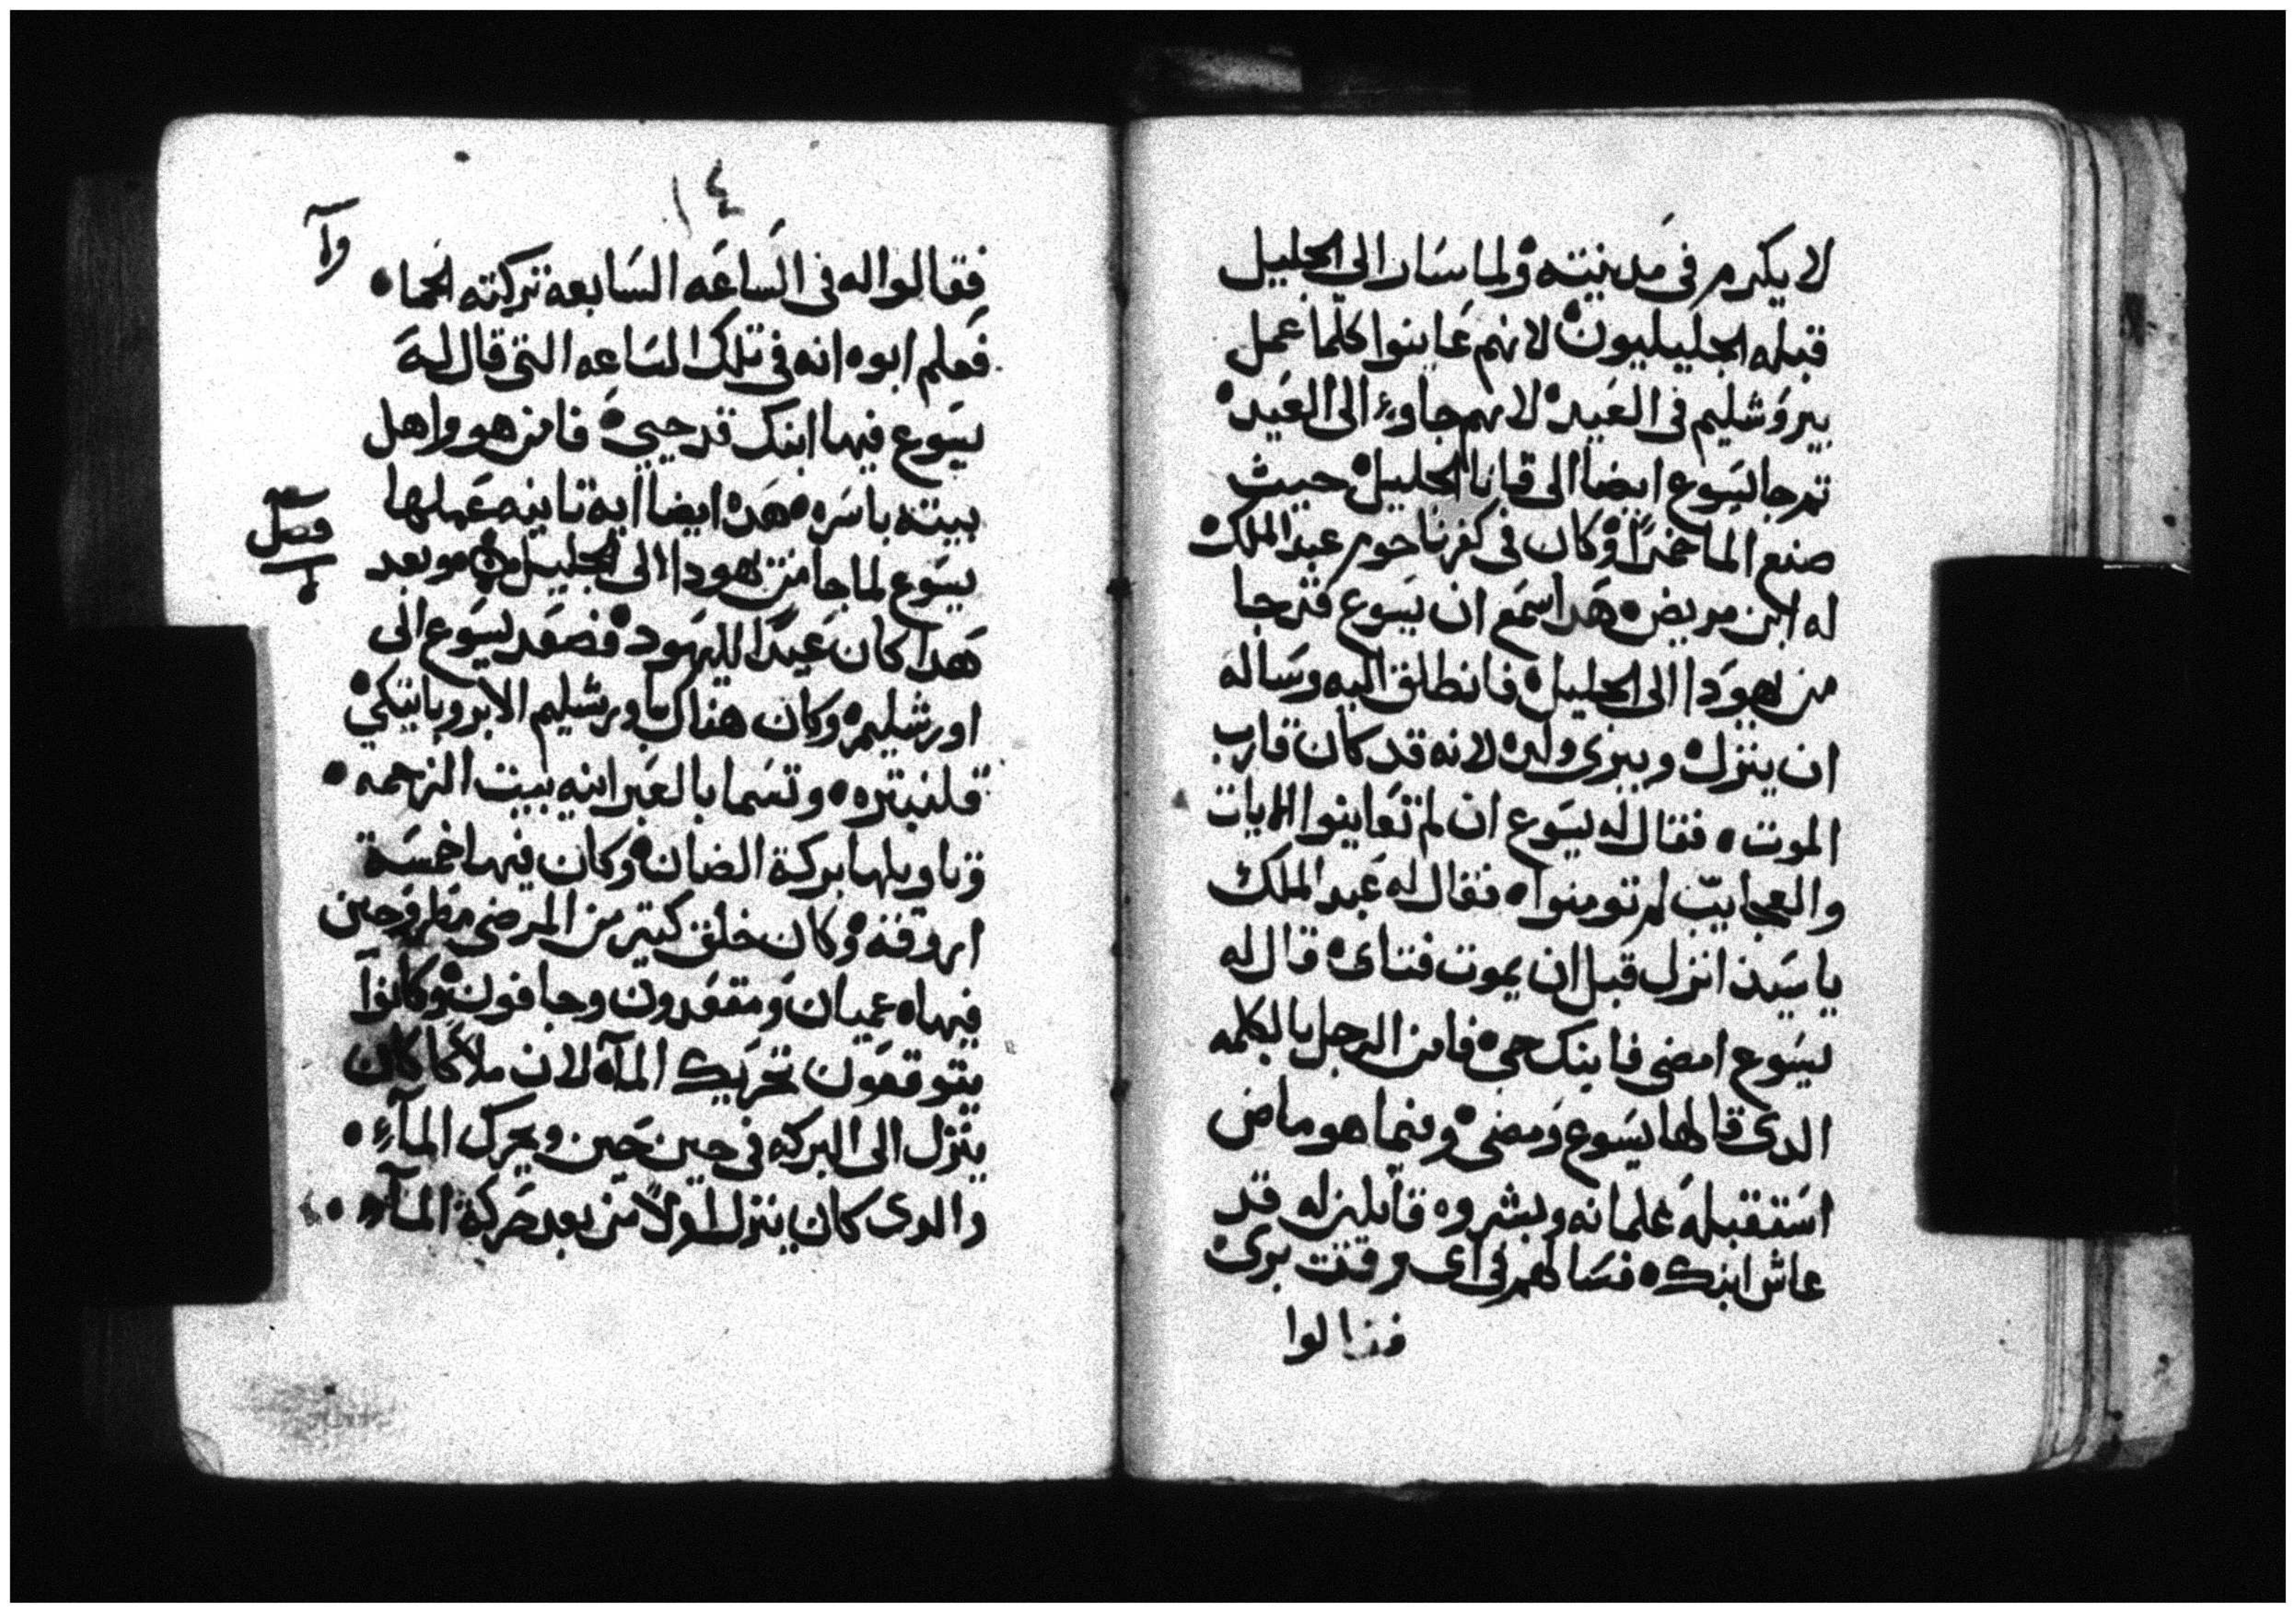 لا يكرم في مدينته ولما سار الى الجليل
قبله الجليليون لانهم عاينوا كلما عمل
بيروشليم في العيد لانهم جاوء الى العيد
تم جا يسوع ايضا الى قانا الجليل حيث
صنع الما خمرا وكان في كفرناحوم عبد الملك
له ابن مريض هدا سمع ان يسوع قد جا
من يهودا الى الجليل فانطلق اليه وساله
ان ينزل ويبرى ولده لانه قد كان قارب
الموت فقال له يسوع ان لم تعاينوا الايات
والعجايب لم تومنوا فقال له عبد الملك
يا سيد انزل قبل ان يموت فتاى قال له
يسوع امضى فابنك حى فامن الرجل بالكلمه
الدى قالها يسوع ومضى وفيما هو ماض
استقبله غلمانه وبشروه قايلين له قد
عاش ابنك فسالهم في اى وقت برى
فقالوا
١٤
وآ
فقالوا له فى الساعه السابعه تركته الحما
فعلم ابوه انه في تلك الساعه التى قال له
يسوع فيها ابنك قد حيى فامن هو واهل
بيته باسره هده ايضا اية تانيه عملها
يسوع لما جا من يهودا الى الجليل وبعد
فصل
هدا كان عيدا لليهود فصعد يسوع الى
اورشليم وكان هناك باورشليم الابروباتيكي
قلنبتره وتسما بالعبرانيه بيت الرحمه
وتاويلها بركة الضان وكان فيها خمسة
اروقة وكان خلق كتير من المرضى مطروحين
فيها عميان ومقعدون وجافون وكانوا
يتوقعون تحريك المآ لان ملاكا كان
ينزل الى البركه في حين حين ويحرك المآء
والدى كان ينزل اولا من بعد حركة المآء